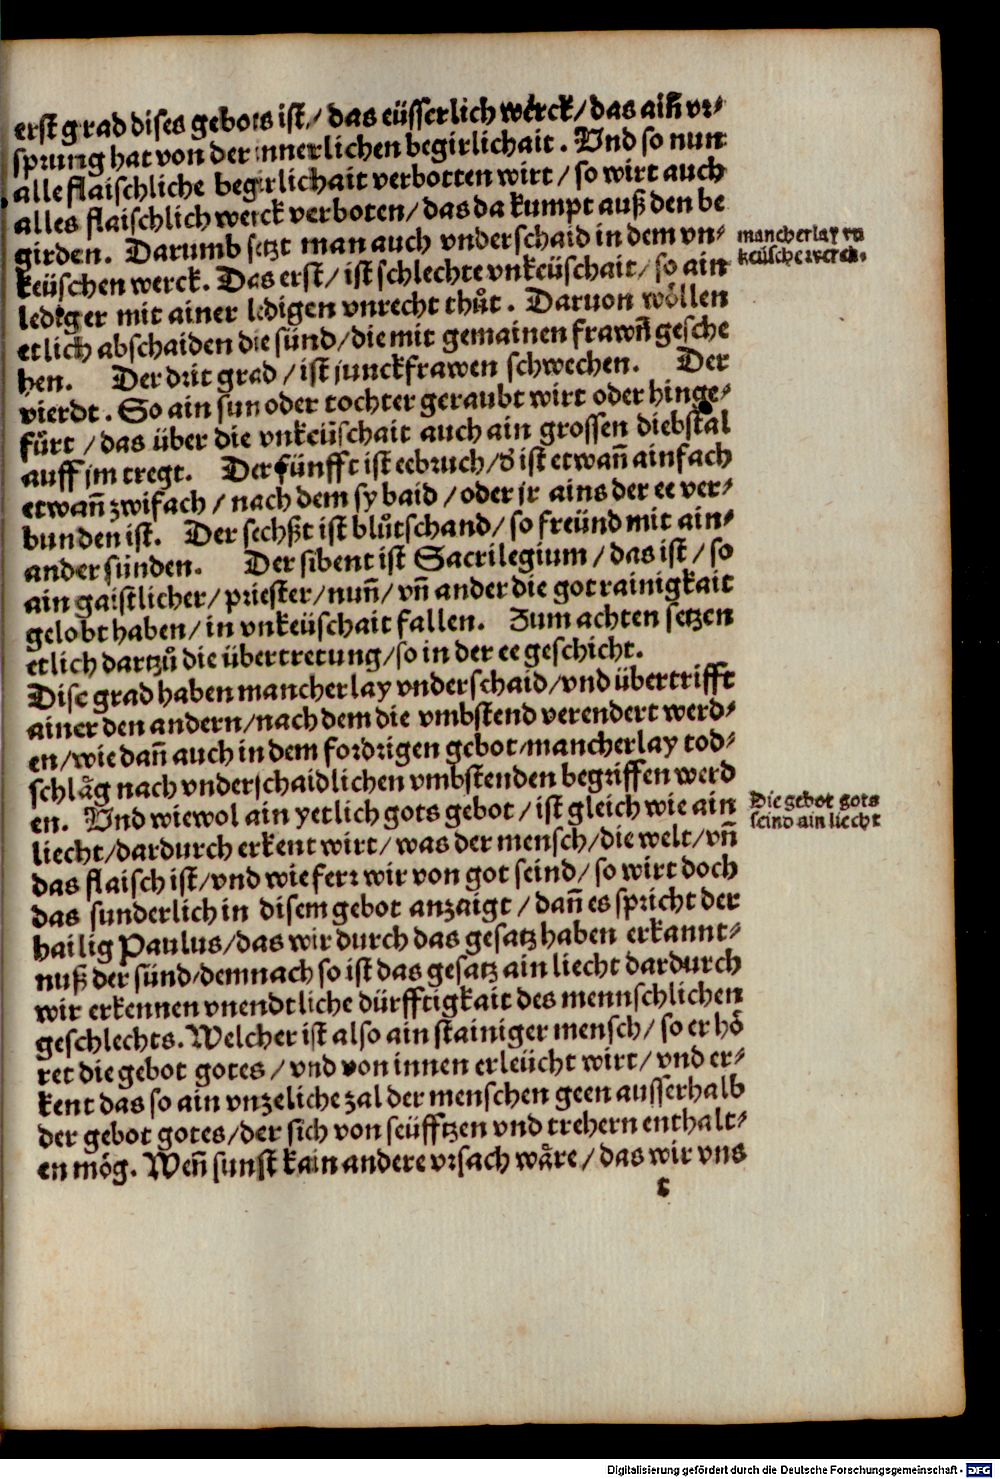 erst grad dises gebots ist / das eüsserlich werck / das ain vr⸗
sprung hat von der innerlichen begirlichait . Vnd so nun
alle flaischliche begirlichait verbotten wirt / so wirt auch
alles flaischlich werck verboten / das da kumpt auß den be
girden . Darumb setzt man auch vnderschaid in dem vn⸗
keüschen werck . Das erst / ist schlechte vnkeüschait / so ain
lediger mit ainer ledigen vnrecht thůt . Daruon wöllen
etlich abschaiden die sünd / die mit gemainen frawn̄ gesche
hen . Der drit grad / ist junckfrawen schwechen . Der
vierdt . So ain sun oder tochter geraubt wirt oder hinge⸗
fürt / das über die vnkeüschait auch ain grossen diebstal
auff jm tregt . Der fünfft ist eebruch / d' ist etwan̄ ainfach
etwan̄ zwifach / nach dem sy baid / oder jr ains der ee ver⸗
bunden ist . Der sechßt ist blůtschand / so freünd mit ain⸗
ander sünden . Der sibent ist Sacrilegium / das ist / so
ain gaistlicher / priester / nun̄ / vn̄ ander die got rainigkait
gelobt haben / in vnkeüschait fallen . Zum achten setzen
etlich dartzů die übertretung / so in der ee geschicht .
Dise grad haben mancherlay vnderschaid / vnd übertrifft
ainer den andern / nach dem die vmbstend verendert werd⸗
en / wie dan̄ auch in dem fordrigen gebot / mancherlay tod⸗
schläg nach vnderschaidlichen vmbstenden begriffen werd
en . Vnd wiewol ain yetlich gots gebot / ist gleich wie ain
liecht / dardurch erkent wirt / was der mensch / die welt / vn̄
das flaisch ist / vnd wie ferr wir von got seind / so wirt doch
das sunderlich in disem gebot anzaigt / dan̄ es spricht der
hailig Paulus / das wir durch das gesatz haben erkannt⸗
nuß der sünd / demnach so ist das gesatz ain liecht dardurch
wir erkennen vnendtliche dürfftigkait des mennschlichen
geschlechts . Welcher ist also ain stainiger mensch / so er hö
ret die gebot gotes / vnd von innen erleücht wirt / vnd er⸗
kent das so ain vnzeliche zal der menschen geen ausserhalb
der gebot gotes / der sich von seüfftzen vnd trehern enthalt⸗
en mög . Wen̄ sunst kain andere vrsach wäre / das wir vns
r
mancherlay vn
keüsche werck .
Die gebot gots
seind ain liecht
Digitalisierung gefördert durch die Deutsche Forschungsgemeinschaft - DFG